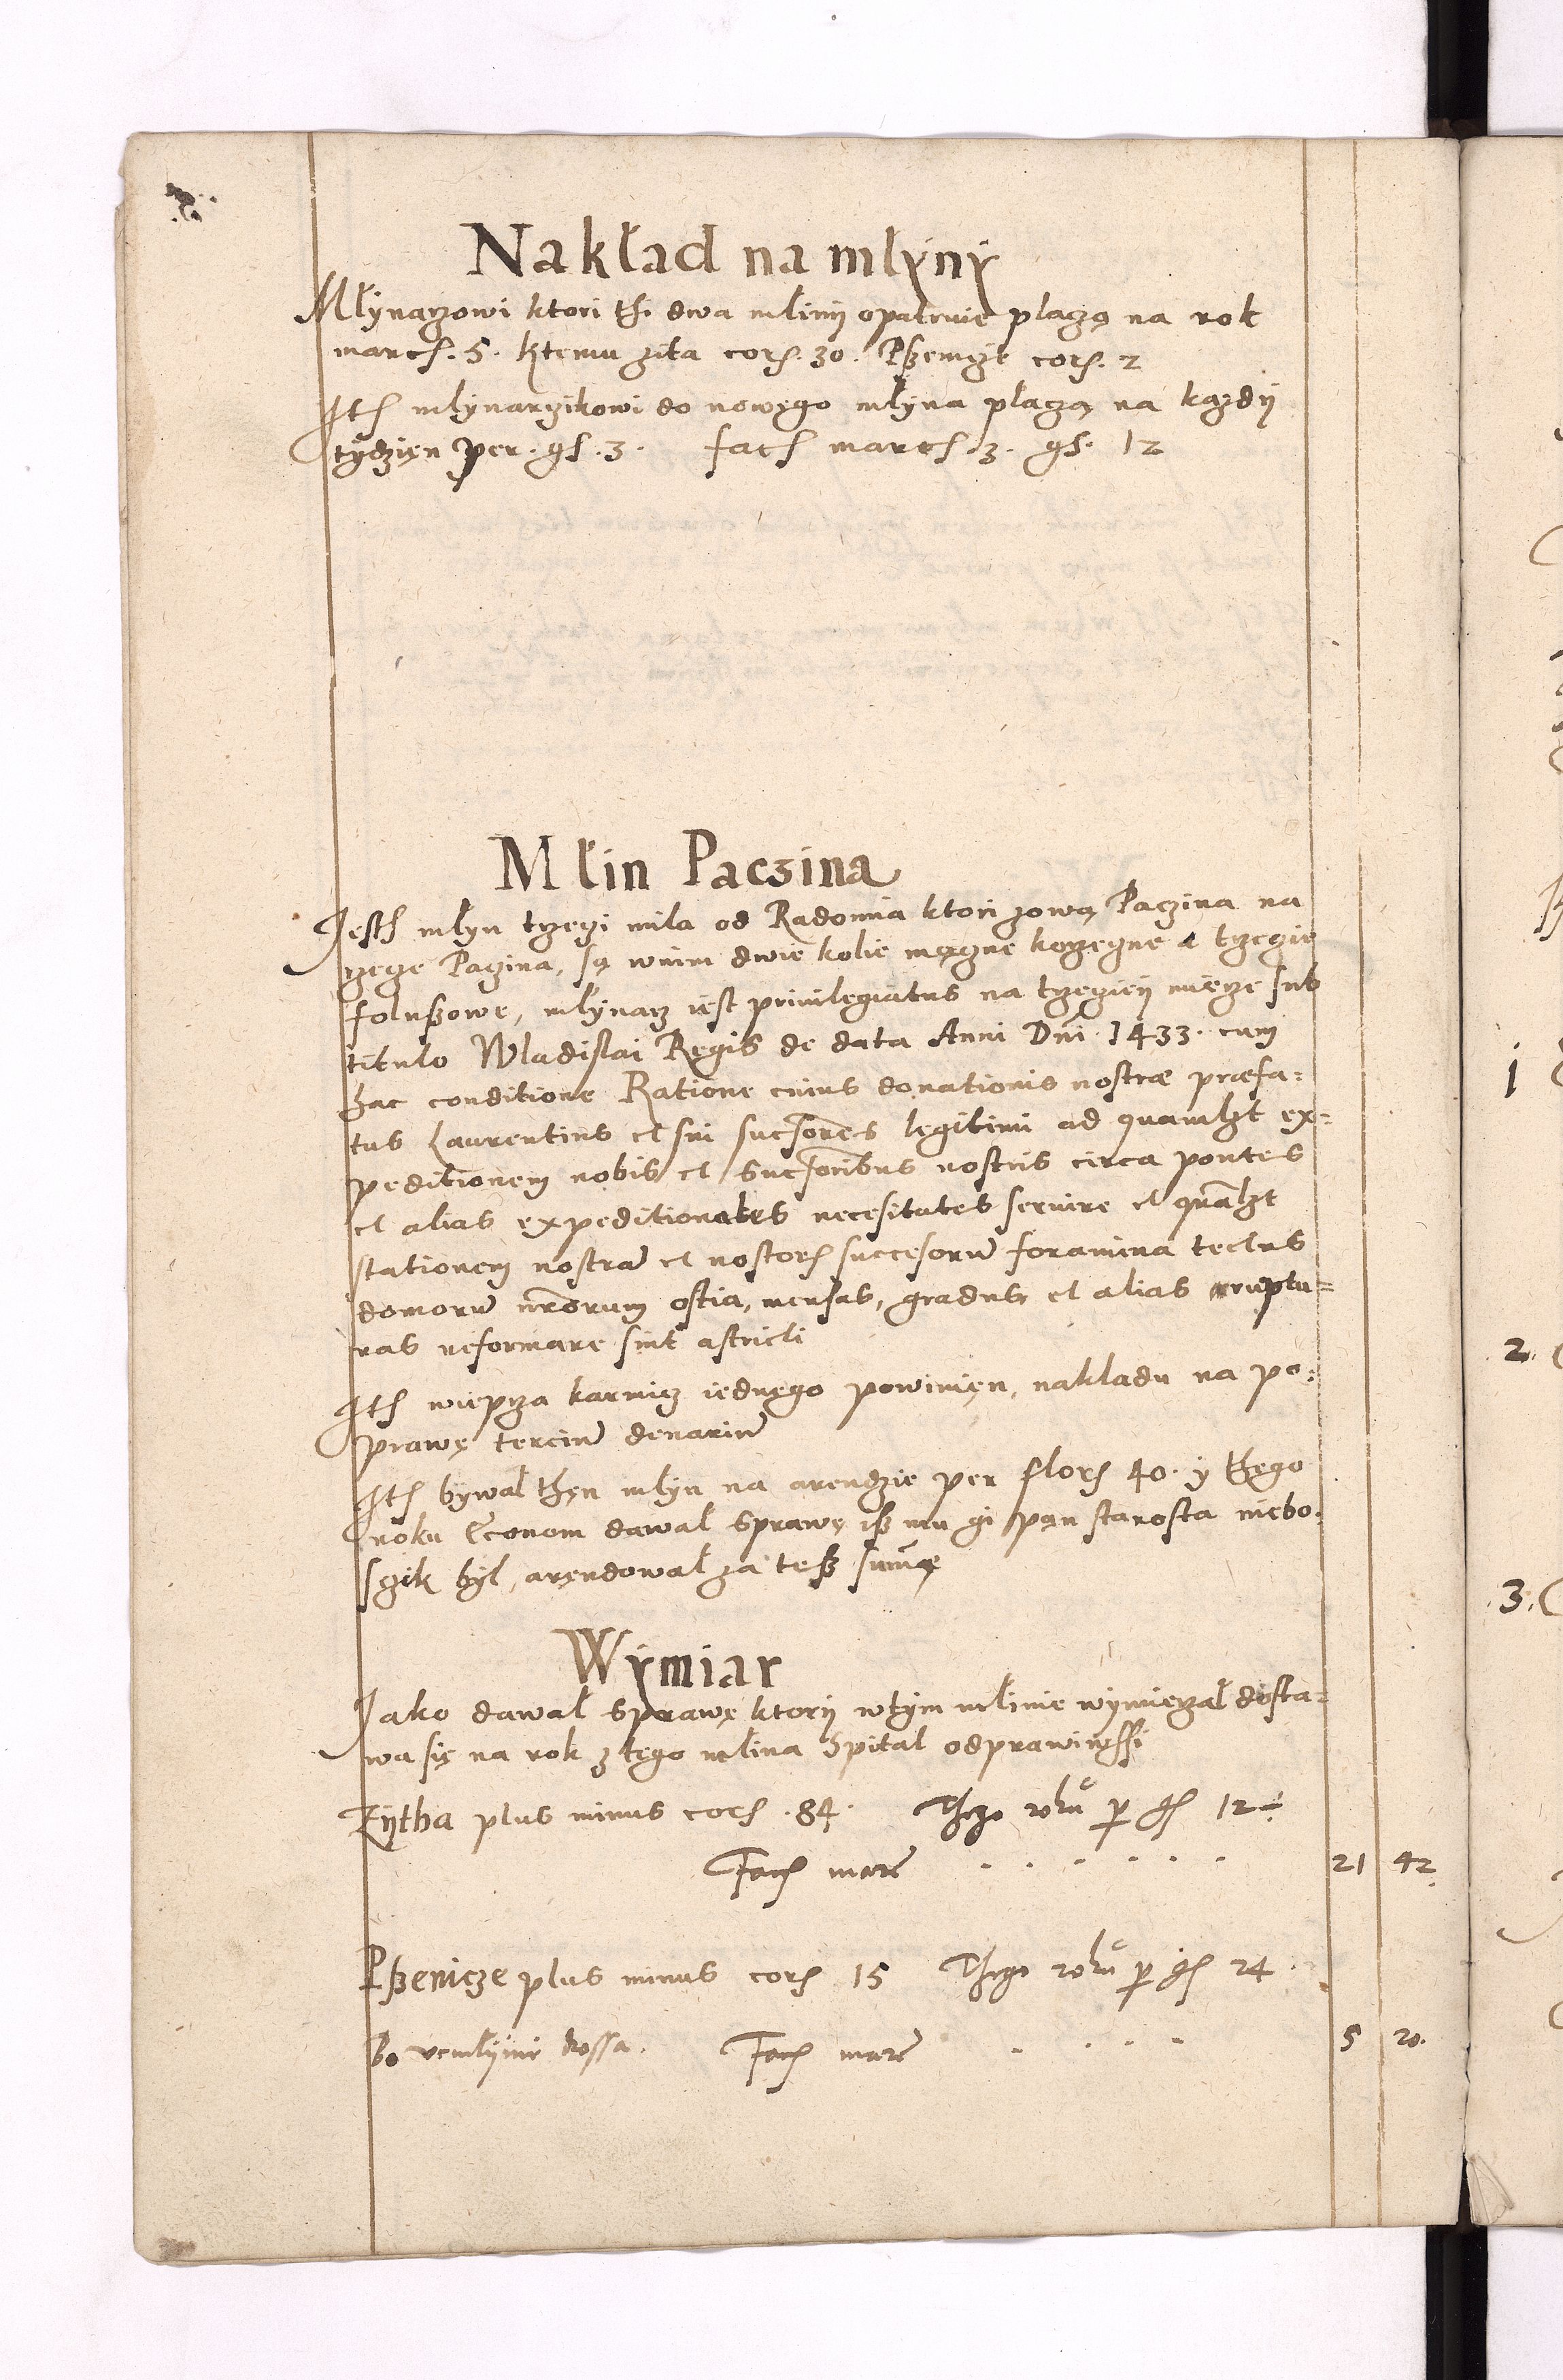 Nakład na mlyny
Młynarzowi ktori th. dwa mlinÿ opatruie płaczą na rok
marcs. 5. ktemu zita cors. 30. Pßeniczÿ cors. 2
Its mlynarzikowi do nowęgo młyna płaczą na każdÿ
tÿdzięn per. gs. 3. facs marcs. 3. gs. 12
Młin Paczina
Jests młyn trzeczi mila od Radomia ktori zową Paczina na
rzecze Paczina, są wnim dwie kolie mączne korzeczne a trzeczie
folußowe, młynarz iest priuilegiatus na trzecziej mierze sub
titulo Wladislai Regis de data Anni Dni 1433. cum
hac conditione Ratione cuius donationis nostræ præfa=
tus Laurentius et sui sucsores legitimi ad quamlzt ex=
peditionem nobis et sucsoribus nostris circa pontes
et alias expeditionales necesitates seruire et quālzt
stationem nostrā et nostrors succesorū foramina tectus
domorū nrorum ostia, mensas, gradus et alias ruptu=
ras reformare sint astricti
Its wieprza karmicz iednęgo powinięn, nakladu na po=
prawę terciū denariū
Its bywał thęn młyn na arendzie per flors 40. y thęgo
roku Œconom dawał sprawę iß mu gi pan starosta niebo=
sczik był, aręndował za teß sūmę
Wymiar
Jako dawał sprawę ktorÿ wtÿm mlinie wymierzał dosta=
wa się na rok z tęgo mlina Spital odprawiwßi
Zÿtha plus minus cors. 84. Thego roku p gs 12
Facs marc 21 42
Pßenicze plus minus cors 15 Thego roku p gs 24
Facs marc 5 20.
1
2.
3.